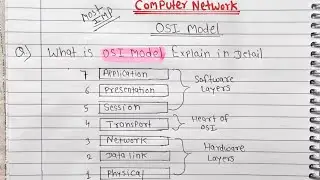 Most
IMP
Computer Network
OSI Model
Q) What is OSI Model Explain in Detail
7 Application
6 Presentation
5 Session
Software
Layers
4 Transport
Heart of
OSI
3 Network
2 Data link
1 Physical
Hardware
Layers